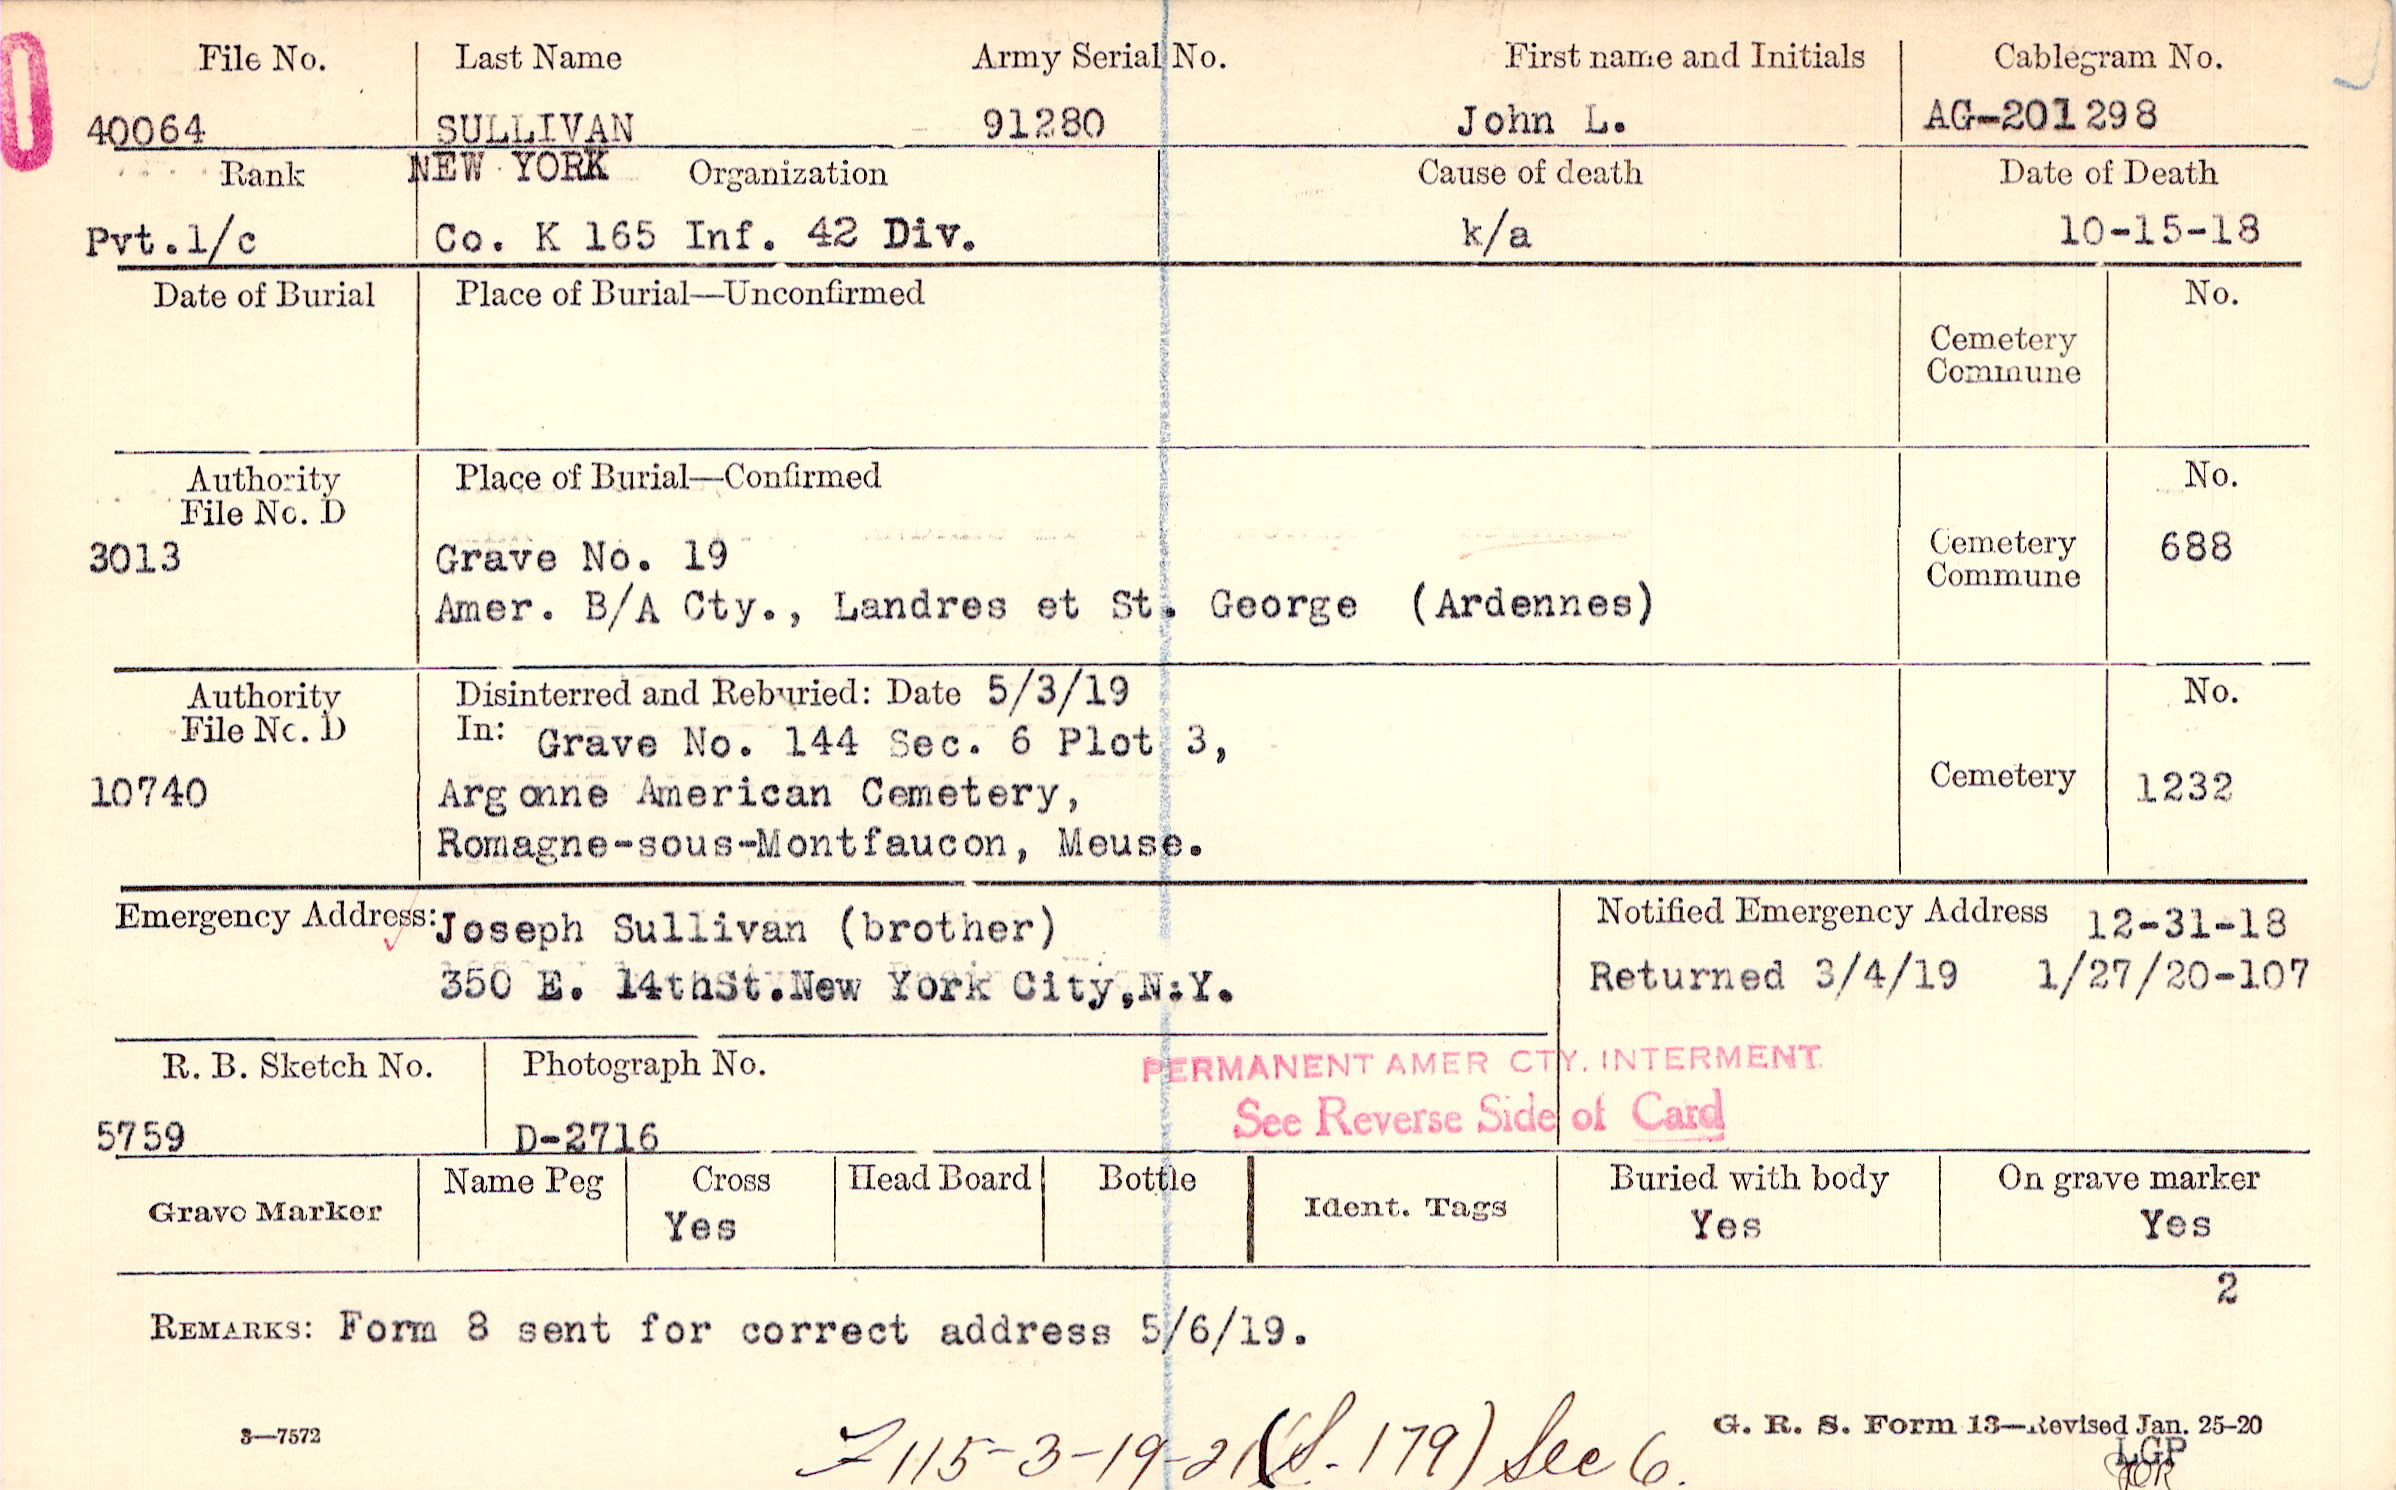 File No. Last Name Army Serial No. First name and Initials Cablegram No.
40064 SULLIVAN 91280 John L. AG-201298
Rank NEW YORK Organization Cause of death Date of Death
Pvt.1/c Co. K 165 Inf. 42 Div. k/a 10-15-18
Date of Burial Place of Burial—Unconfirmed No.
Cemetery
Commune
Authority Place of Burial—Confirmed No.
File No. D
3013 Grave No. 19 Cemetery 688
Commune
Amer. B/A Cty., Landres et St. George (Ardennes)
Authority Disinterred and Reburied: Date 5/3/19 No.
File No. D In: Grave No. 144 Sec. 6 Plot 3,
10740 Argonne American Cemetery, Cemetery 1232
Romagne-sous-Montfaucon, Meuse.
Emergency Address: Joseph Sullivan (brother) Notified Emergency Address 12-31-18
350 E. 14thSt.New York City,N.Y. Returned 3/4/19 1/27/20-107
R. B. Sketch No. Photograph No. PERMANENT AMER CTY. INTERMENT
See Reverse Side of Card
5759 D-2716
Grave Marker Name Peg Cross Head Board Bottle Ident. Tags Buried with body On grave marker
Yes Yes Yes
2
REMARKS: Form 8 sent for correct address 5/6/19.
3—7572 G. R. S. Form 13—Revised Jan. 25-20
115-3-19-21 (S-179) Sec 6.
LGP